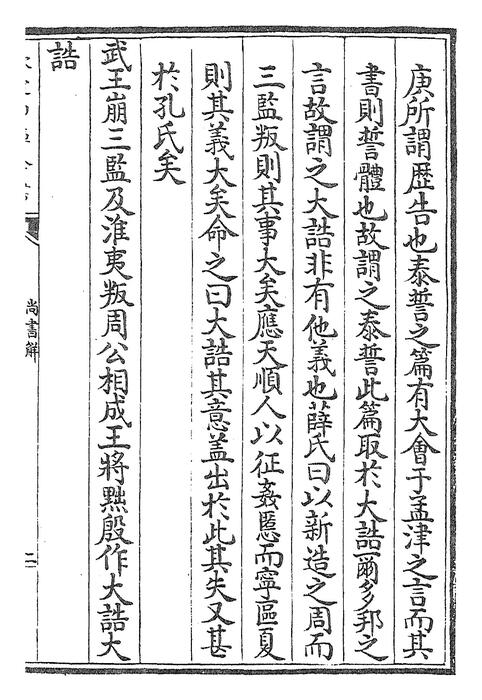 庚所謂歴告也泰誓之篇有大㑹于孟津之言而其
書則誓體也故謂之泰誓此篇取於大誥爾多邦之
言故謂之大誥非有他義也薛氏曰以新造之周而
三監叛則其事大矣應天順人以征姦慝而寧區夏
則其義大矣命之曰大誥其意盖出於此其失又甚
於孔氏矣
武王崩三監及淮夷叛周公相成王將黜殷作大誥大
誥
尚書解
二